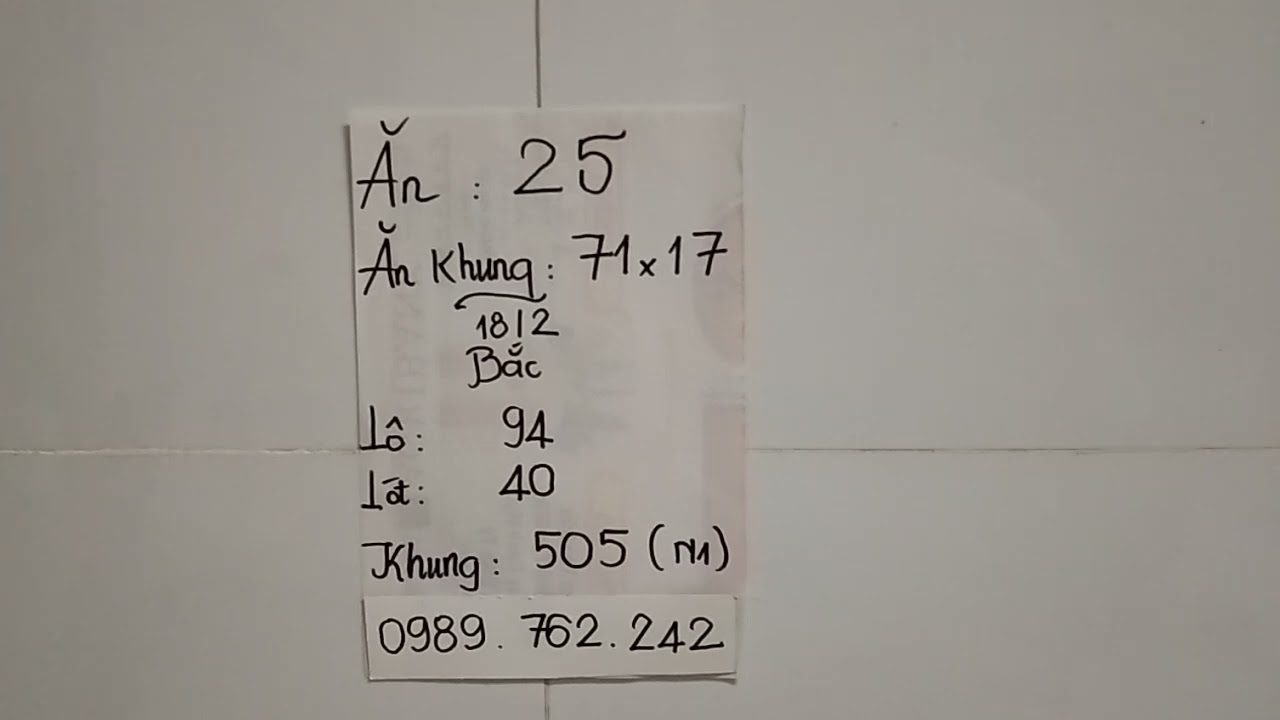 Ăn : 25
Ăn Khung : 71 x 17
18/2
Bắc
Lô : 94
Lót : 40
Khung : 505 (N1)
0989.762.242